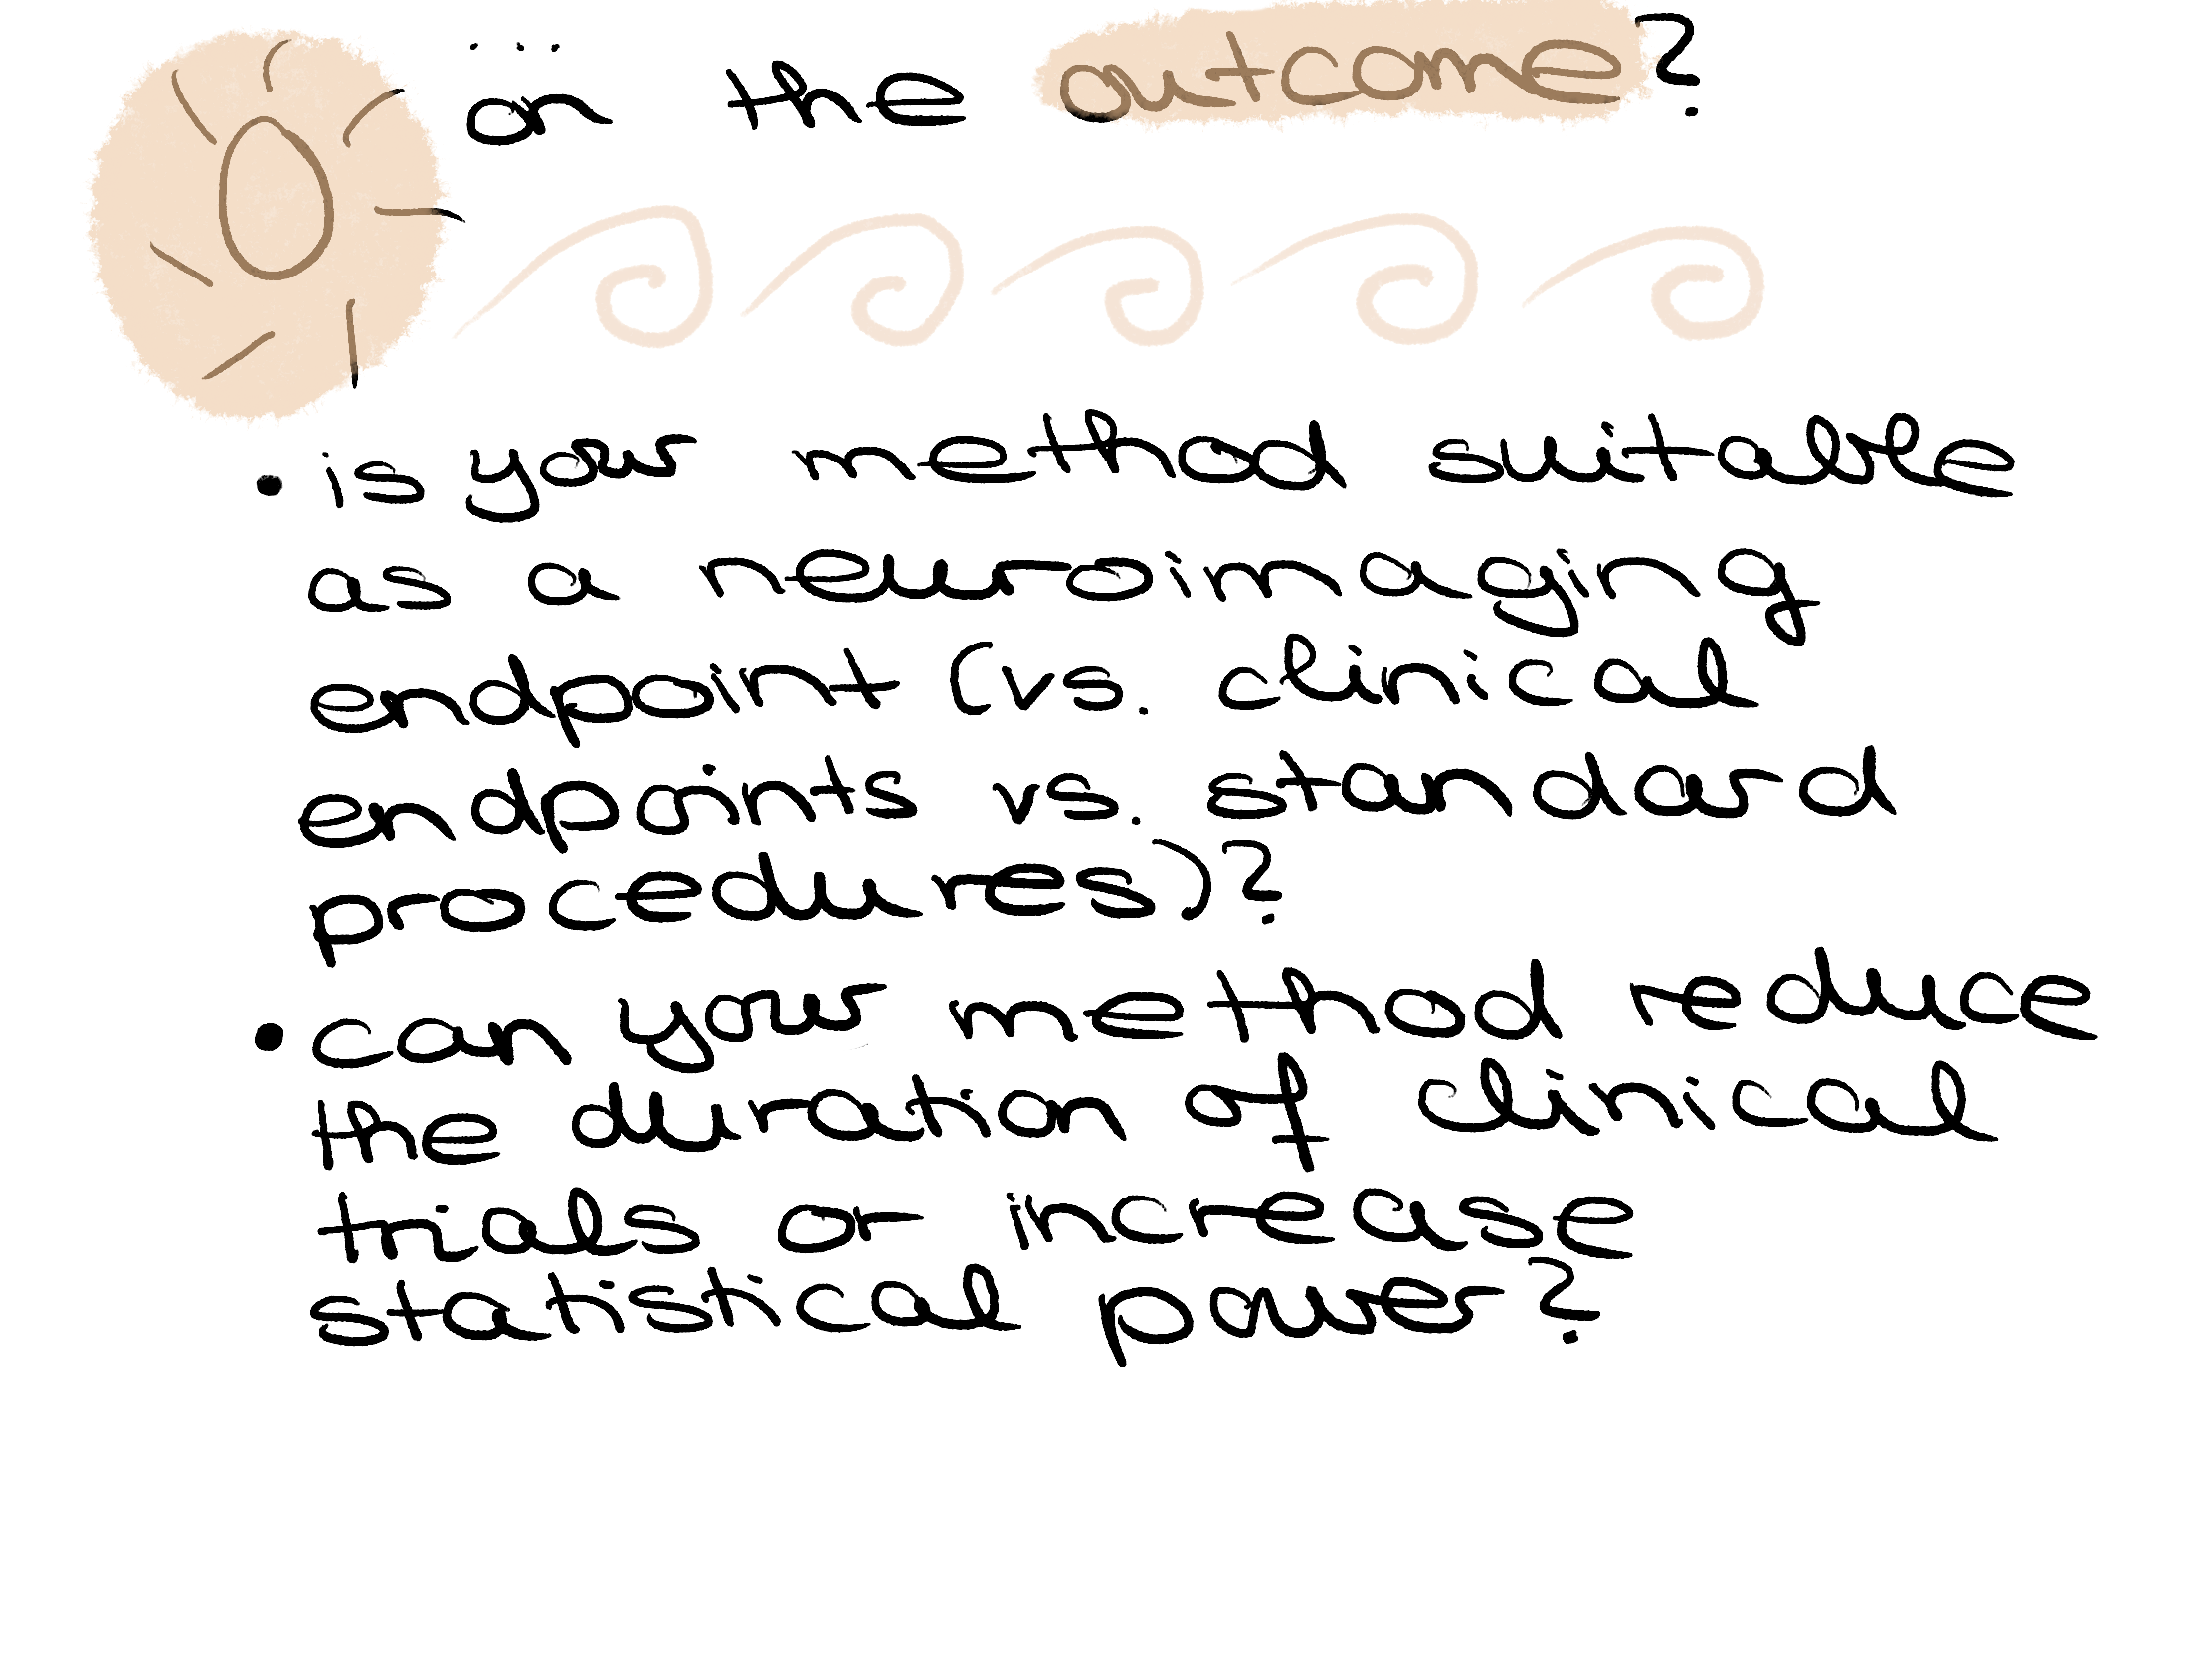 ...
on the outcome?
• is your method suitable
as a neuroimaging
endpoint (vs. clinical
endpoints vs. standard
procedures)?
• can your method reduce
the duration of clinical
trials or increase
statistical power?